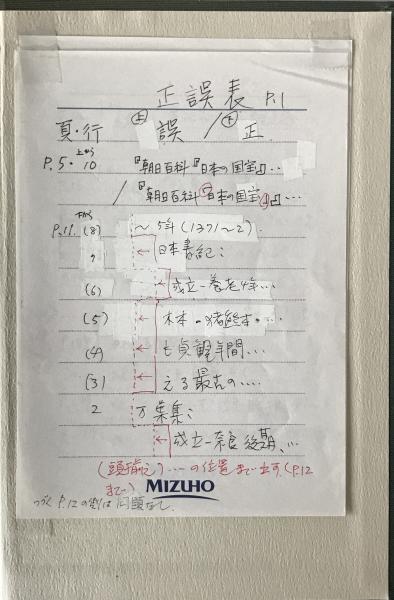 正誤表 P.1
頁・行 上 誤 / 下 正
P.5・上から10 『朝日百科『日本の国宝』』…
/『朝日百科 日本の国宝』…
P.11. 下から(8) 〜5年(1371〜2).
〃 ← 日本書紀:
(6) ← 成立-養老4年…
(5) 本・猪熊本・…
(4) ← 七貞観年間….
(3) ← える最古の….
2 万葉集:
← 成立-奈良後期、…
(頭揃え)…の位置まで出す(P.12
まで)
MIZUHO
つづく P.12の例は問題なし.